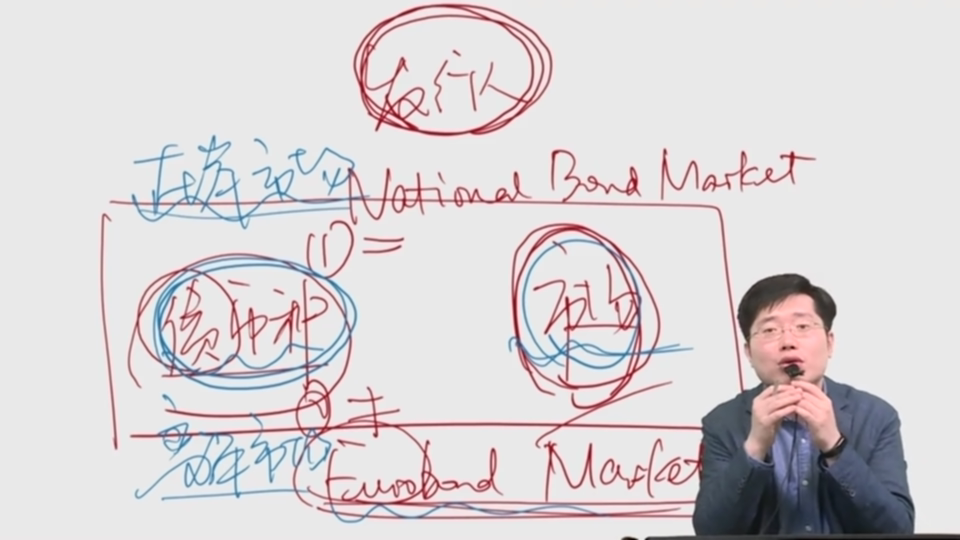 发行人
在岸市场 National Bond Market
(1) =
债币种 市场
② ≠
离岸市场 Eurobond Market